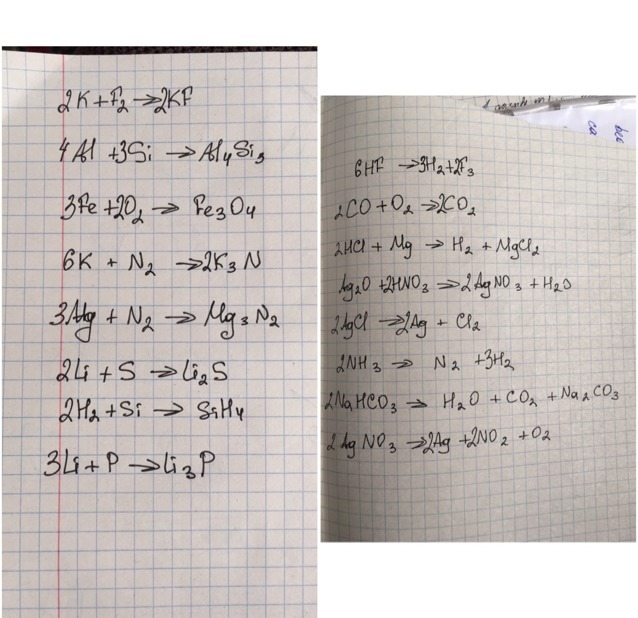 2K + F₂ → 2KF
4Al + 3Si → Al₄Si₃
3Fe + 2O₂ → Fe₃O₄
6K + N₂ → 2K₃N
3Mg + N₂ → Mg₃N₂
2Li + S → Li₂S
2H₂ + Si → SiH₄
3Li + P → Li₃P
6HF → 3H₂ + 2F₃
2CO + O₂ → 2CO₂
2HCl + Mg → H₂ + MgCl₂
Ag₂O + 2HNO₃ → 2AgNO₃ + H₂O
2AgCl → 2Ag + Cl₂
2NH₃ → N₂ + 3H₂
2NaHCO₃ → H₂O + CO₂ + Na₂CO₃
2AgNO₃ → 2Ag + 2NO₂ + O₂